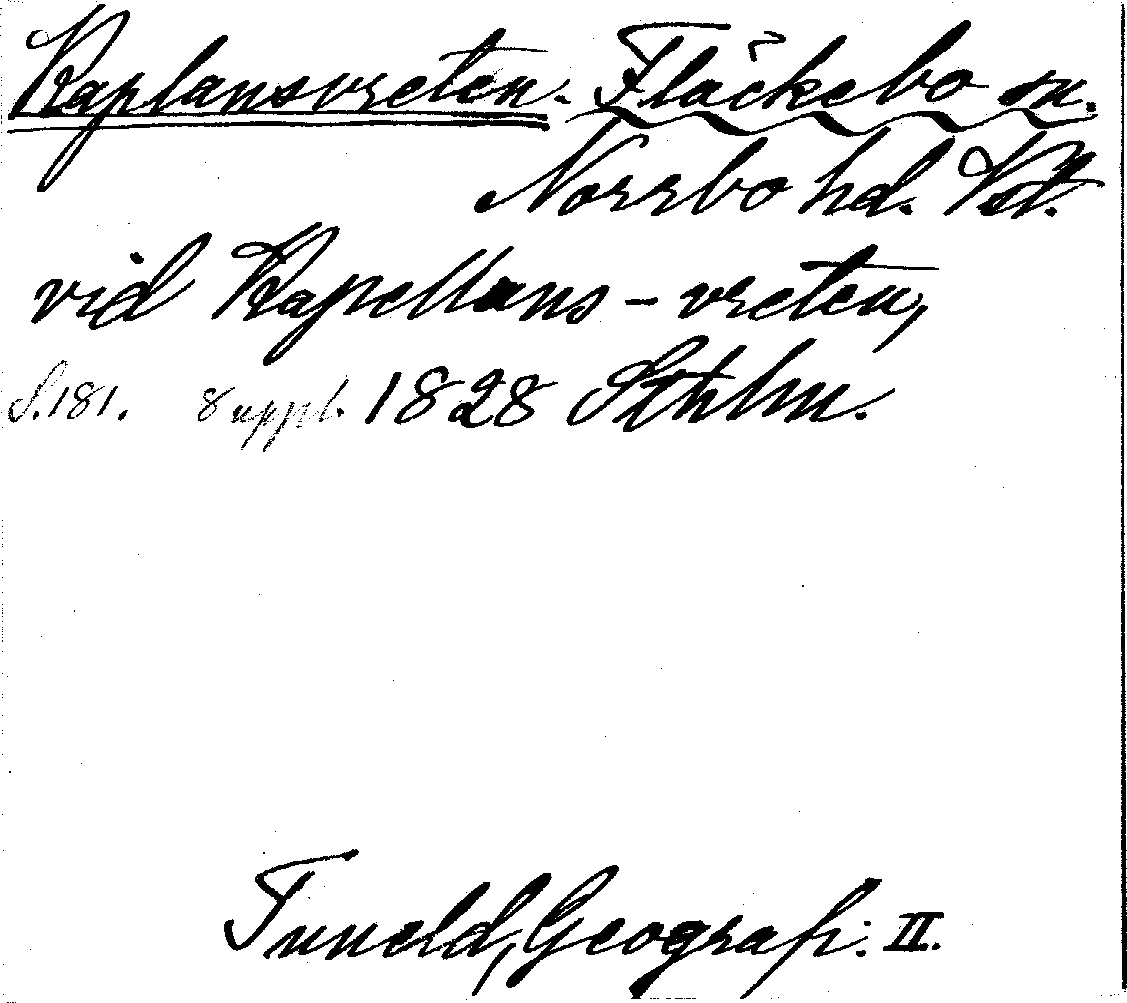 Kaplansvreten. Fläckebo sn.
Norrbo hd. Vstl.
vid Kapellans-vreten,
S. 181. 8 uppl. 1828 Sthlm.
Tuneld, Geografi: II.